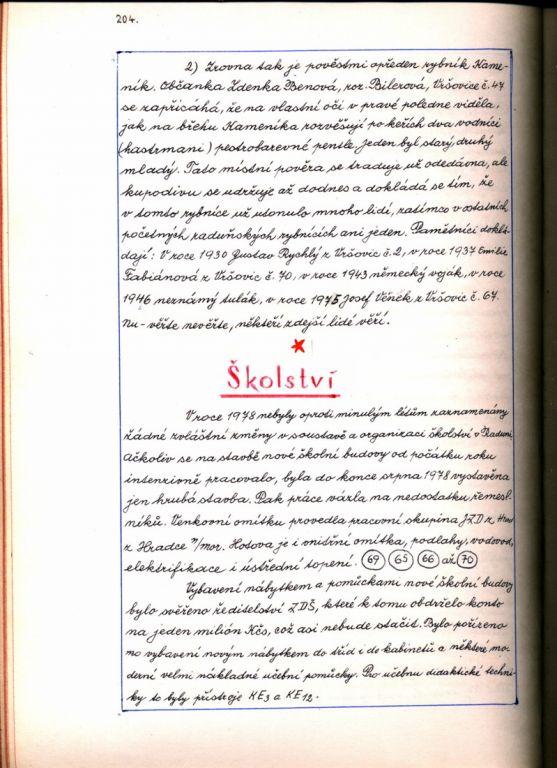 204.
2) Zrovna tak je pověstmi opředen rybník Kame-
ník. Občanka Zdenka Benová, roz. Bilerová, Vršovice č. 47
se zapřísáhá, že na vlastní oči v pravé poledne viděla,
jak na břehu Kameníka rozvěšují po keřích dva vodníci
(hastrmani) pestrobarevné pentle. Jeden byl starý, druhý
mladý. Tato místní pověra se traduje už odedávna, ale
kupodivu se udržuje až dodnes a dokládá se tím, že
v tomto rybníce už utonulo mnoho lidí, zatímco v ostatních
početných raduňských rybnících ani jeden. Pamětníci doklá-
dají: V roce 1930 Gustav Rychlý z Vršovic č. 2, v roce 1937 Emilie
Fabiánová z Vršovic č. 70, v roce 1943 německý voják, v roce
1946 neznámý tulák, v roce 1975 Josef Věněk z Vršovic č. 67.
Nu – věřte nevěřte, někteří zdejší lidé věří.
Školství
V roce 1978 nebyly oproti minulým létům zaznamenány
žádné zvláštní změny v soustavě a organizaci školství v Raduni
Ačkoliv se na stavbě nové školní budovy od počátku roku
intenzivně pracovalo, byla do konce srpna 1978 vystavěna
jen hrubá stavba. Pak práce vázla na nedostatku řemesl-
níků. Venkovní omítku provedla pracovní skupina JZD z
z Hradce n/mor. Hotova je i vnitřní omítka, podlahy, vodovod,
elektrifikace i ústřední topení. 69 65 66 až 70
Vybavení nábytkem a pomůckami nové školní budovy
bylo svěřeno ředitelství ZDŠ, které k tomu obdrželo konto
na jeden milión Kčs, což asi nebude stačit. Bylo pořízeno
mo vybavení novým nábytkem do tříd i do kabinetů a některé mo-
derní velmi nákladné učební pomůcky. Pro učebnu didaktické techni-
ky to byly přístroje KE3 a KE12.